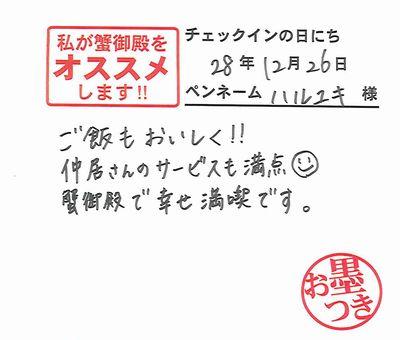 私が蟹御殿を
オススメ
します!!
チェックインの日にち
28年12月26日
ペンネーム ハルユキ 様
ご飯もおいしく!!
仲居さんのサービスも満点
蟹御殿で幸せ満喫です。
お墨つき